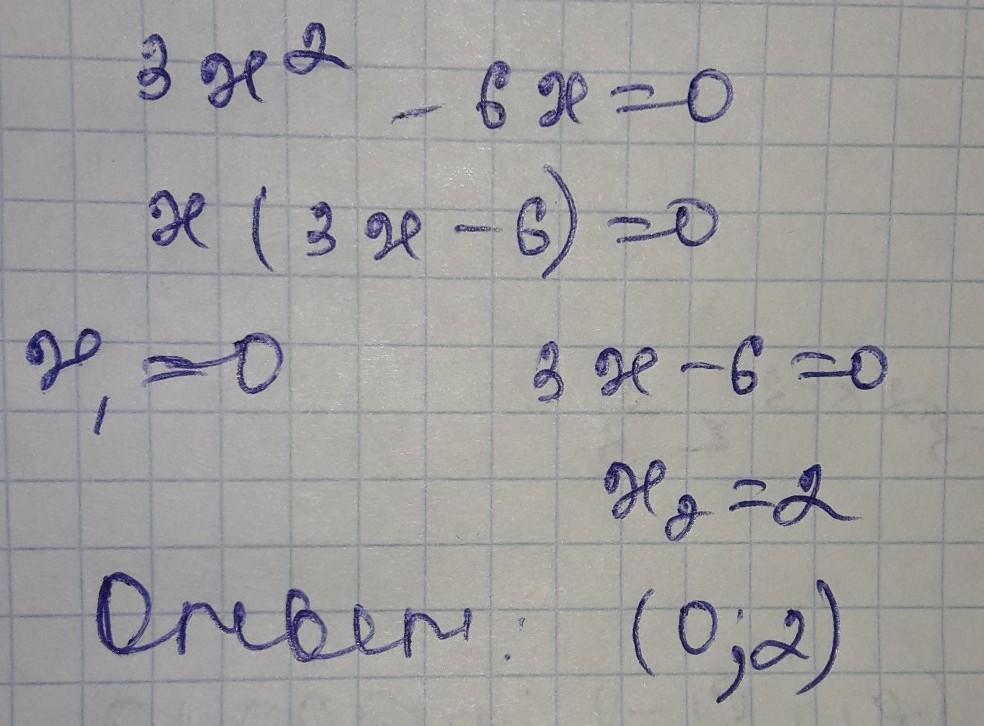 3x² - 6x = 0
x(3x - 6) = 0
x₁ = 0 3x - 6 = 0
x₂ = 2
Ответ: (0; 2)